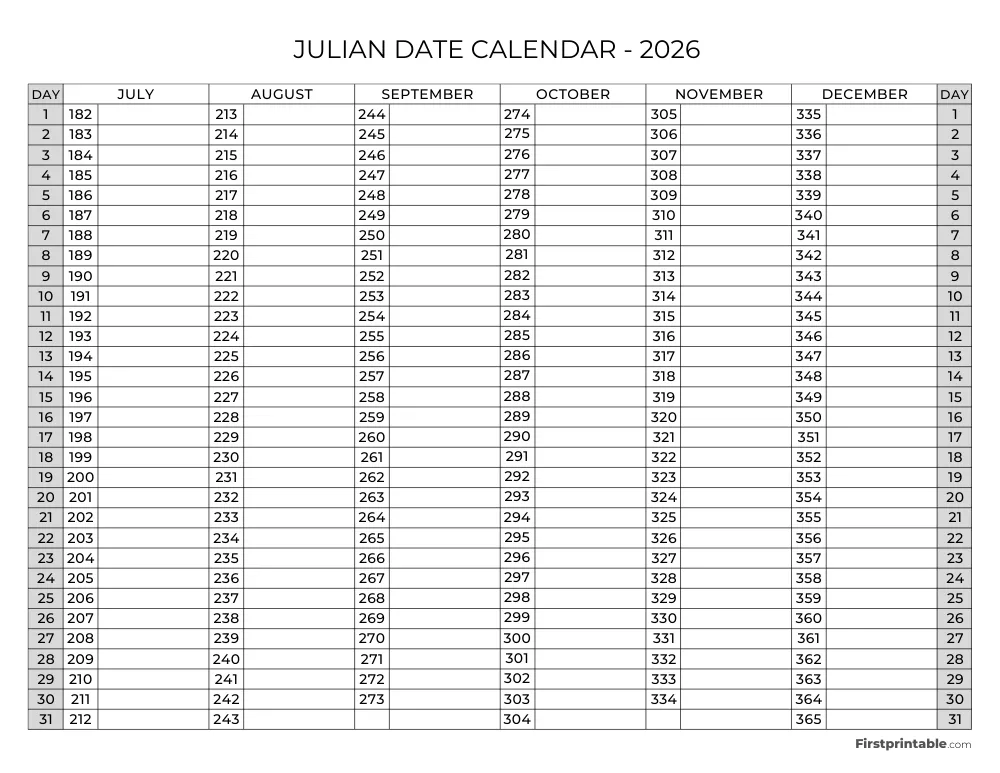 JULIAN DATE CALENDAR - 2026
DAY JULY AUGUST SEPTEMBER OCTOBER NOVEMBER DECEMBER DAY
1 182 213 244 274 305 335 1
2 183 214 245 275 306 336 2
3 184 215 246 276 307 337 3
4 185 216 247 277 308 338 4
5 186 217 248 278 309 339 5
6 187 218 249 279 310 340 6
7 188 219 250 280 311 341 7
8 189 220 251 281 312 342 8
9 190 221 252 282 313 343 9
10 191 222 253 283 314 344 10
11 192 223 254 284 315 345 11
12 193 224 255 285 316 346 12
13 194 225 256 286 317 347 13
14 195 226 257 287 318 348 14
15 196 227 258 288 319 349 15
16 197 228 259 289 320 350 16
17 198 229 260 290 321 351 17
18 199 230 261 291 322 352 18
19 200 231 262 292 323 353 19
20 201 232 263 293 324 354 20
21 202 233 264 294 325 355 21
22 203 234 265 295 326 356 22
23 204 235 266 296 327 357 23
24 205 236 267 297 328 358 24
25 206 237 268 298 329 359 25
26 207 238 269 299 330 360 26
27 208 239 270 300 331 361 27
28 209 240 271 301 332 362 28
29 210 241 272 302 333 363 29
30 211 242 273 303 334 364 30
31 212 243 304 365 31
Firstprintable.com